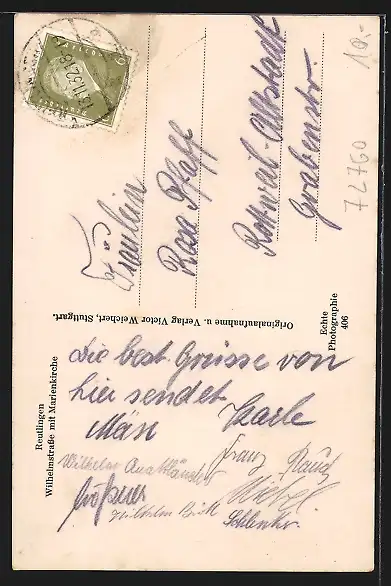 Reutlingen
Wilhelmstraße mit Marienkirche
Die best. Grüsse von
hier sendet Karle
Franz Rauch
Wilhelm
Wiebel
Wilhelm
Originalaufnahme u. Verlag Victor Weichert, Stuttgart.
Echte
Photographie
406
Fräulein
Rosa Pfaff
Rottweil-Altstadt
Grabenstr.
10.-
72760
6